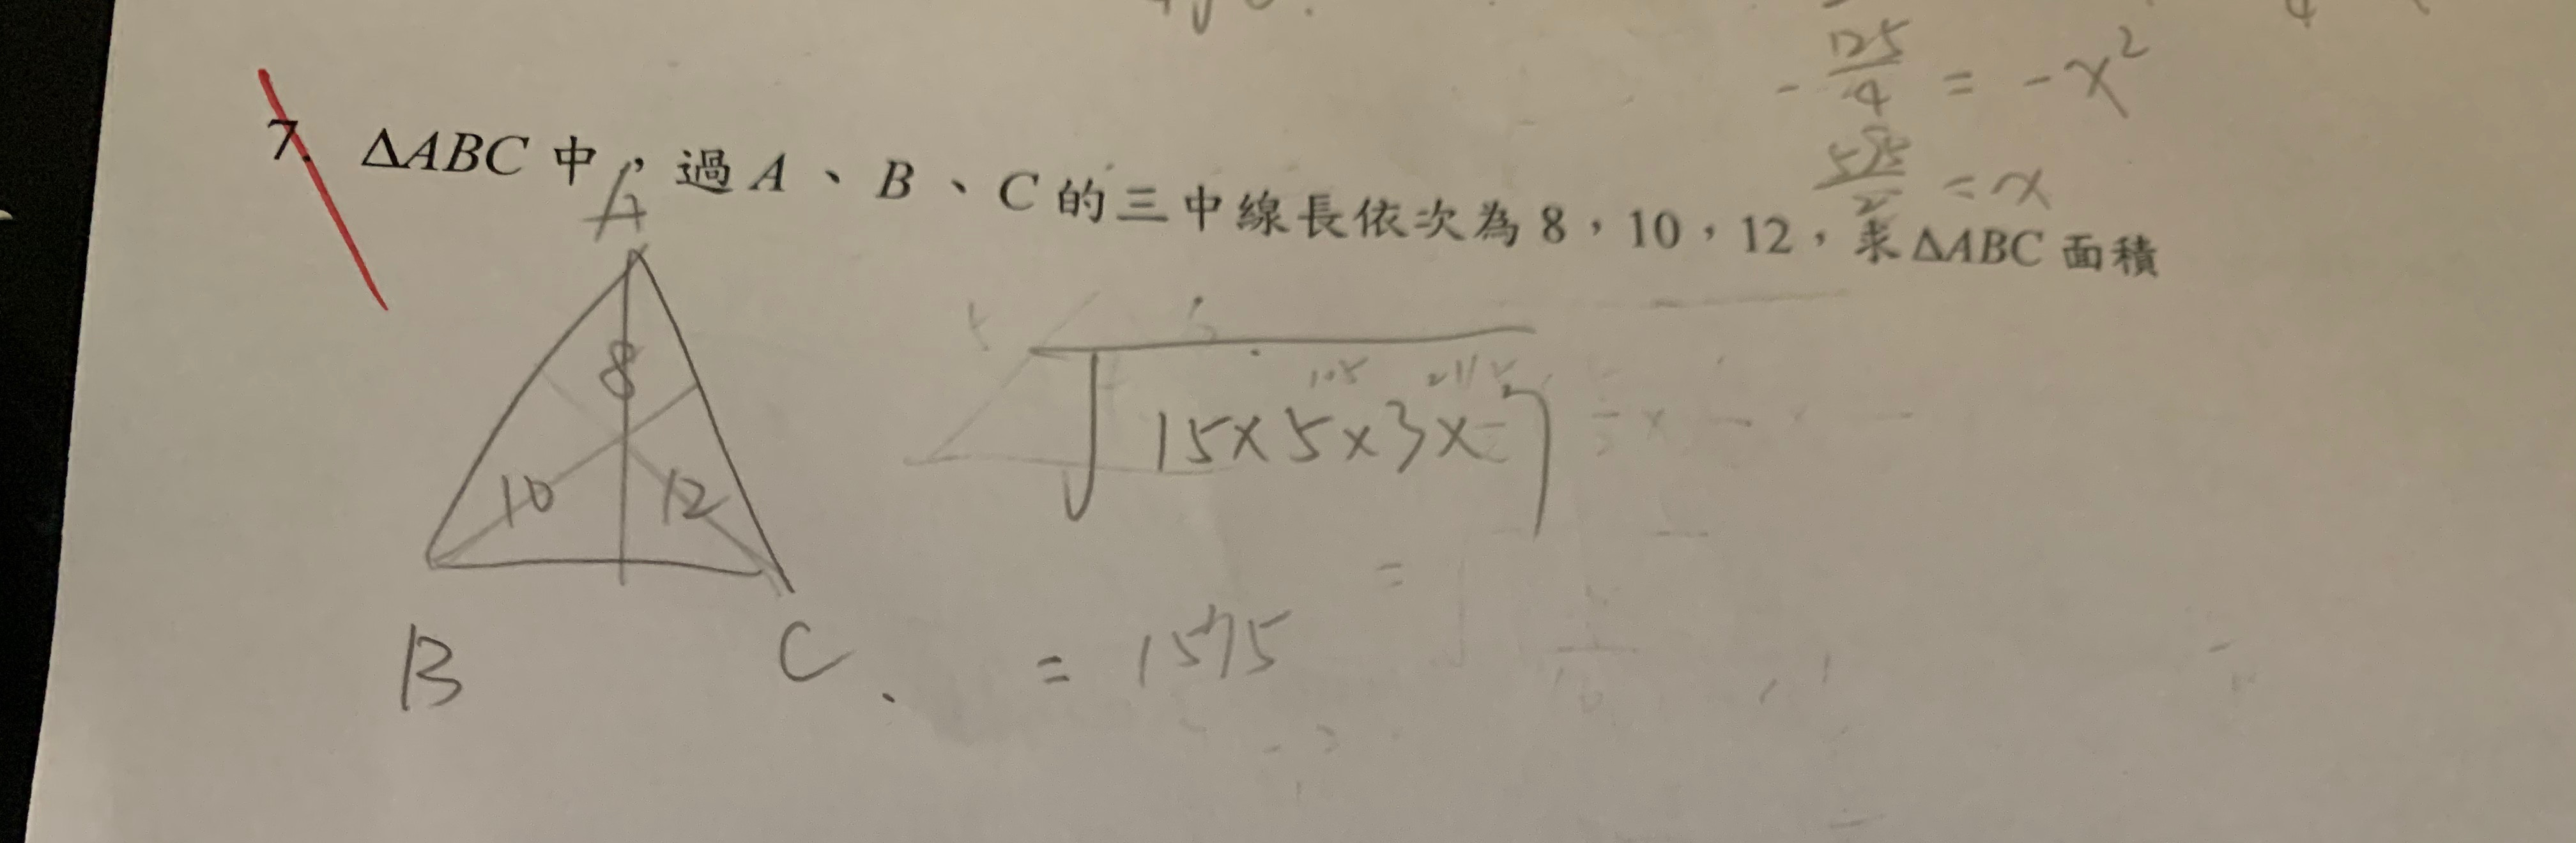 - 125/4 = -x²
5√5/2 = x
7. ΔABC 中，過 A、B、C 的三中線長依次為 8，10，12，求 ΔABC 面積
A
8
10 12
B C
√15×5×3×7
= 1575